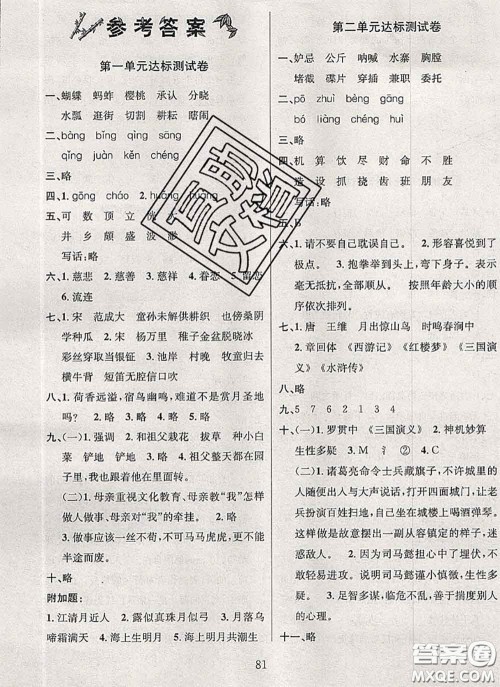 参考答案
第一单元达标测试卷
一、蝴蝶 蚂蚱 樱桃 承认 分晓
水瓢 逛街 切割 耕耘 瞎闹
二、bàng bǐng qìng sāng
qǐng juàn kěn chéng
三、略
四、1. gōng cháo 2. gòng
五、可 数 顶 立
井 乡 颇 盛 波
写话:略
六、1. 慈悲 2. 慈善 3. 慈祥 4. 眷恋 5. 留恋
6. 流连
七、1. 宋 范成大 童孙未解供耕织 也傍桑阴
学种瓜 2. 宋 杨万里 稚子金盆脱晓冰
彩丝穿取当银钲 3. 池岸 村晚 牧童归去
横牛背 短笛无腔信口吹
八、1. 荷叶还有余滴,宿鸟幽鸣,难道不是赏月圣地
吗?
九、(一)1. 强调 2. 和祖父栽花 拔草 种小白
菜 铲地 铲地 3. 祖父整天都在园子
里,我也跟着他在里面转。
(二)1. 母亲重视文化教育、母亲教“我”怎样
做人做事、母亲对“我”的牵挂。 2. 略
3. 做事情要认认真真,不可马马虎虎,更不能
半途而废。
十、略
附加题:
1. 江清月近人 2. 露似真珠月似弓 3. 月落乌
啼霜满天 4. 海上生明月 5. 海上明月共潮生
第二单元达标测试卷
一、妒忌 公斤 呐喊 水寨 胸膛
堵截 截止 穿梭 兼职 委托
二、pō zhuì bèng gū
bó liàng chéng huì
三、略
四、机 算 饮 尽 财 命 不 胜
造 设 抓 挠 齿 班 朋 友
五、B
六、1. 请不要自己耽误自己。 2. 形容喜悦到了
极点。 3. 抱拳举到头上方,弯下身子,表示
毫无抵抗,全部顺从。 按照年龄大小的顺序
依次排列。
七、1. 唐 王维 月出惊山鸟 时鸣春涧中
2. 章回体 《西游记》《红楼梦》《三国演
义》《水浒传》
八、略
九、5 7 6 2 1 3 4
十、(一)1. 罗贯中 《三国演义》 2. 神机妙算
生性多疑 3. M 4. 略
(二)1. 诸葛亮命令士兵藏旗子,不许城里的
人随便外出与大声说话,打开四面城门,让士
兵扮演百姓扫地,自己坐在城楼上喝酒弹琴。
这样做是故意摆出一副从容镇定的样子,迷
惑敌人。 2. 因为司马懿担心中了埋伏,不
敢轻易进攻。表现了司马懿谨慎小心、生性
多疑的性格。 3. 足智多谋,临危不乱,善于把握别人
的心理。
十一、略
81